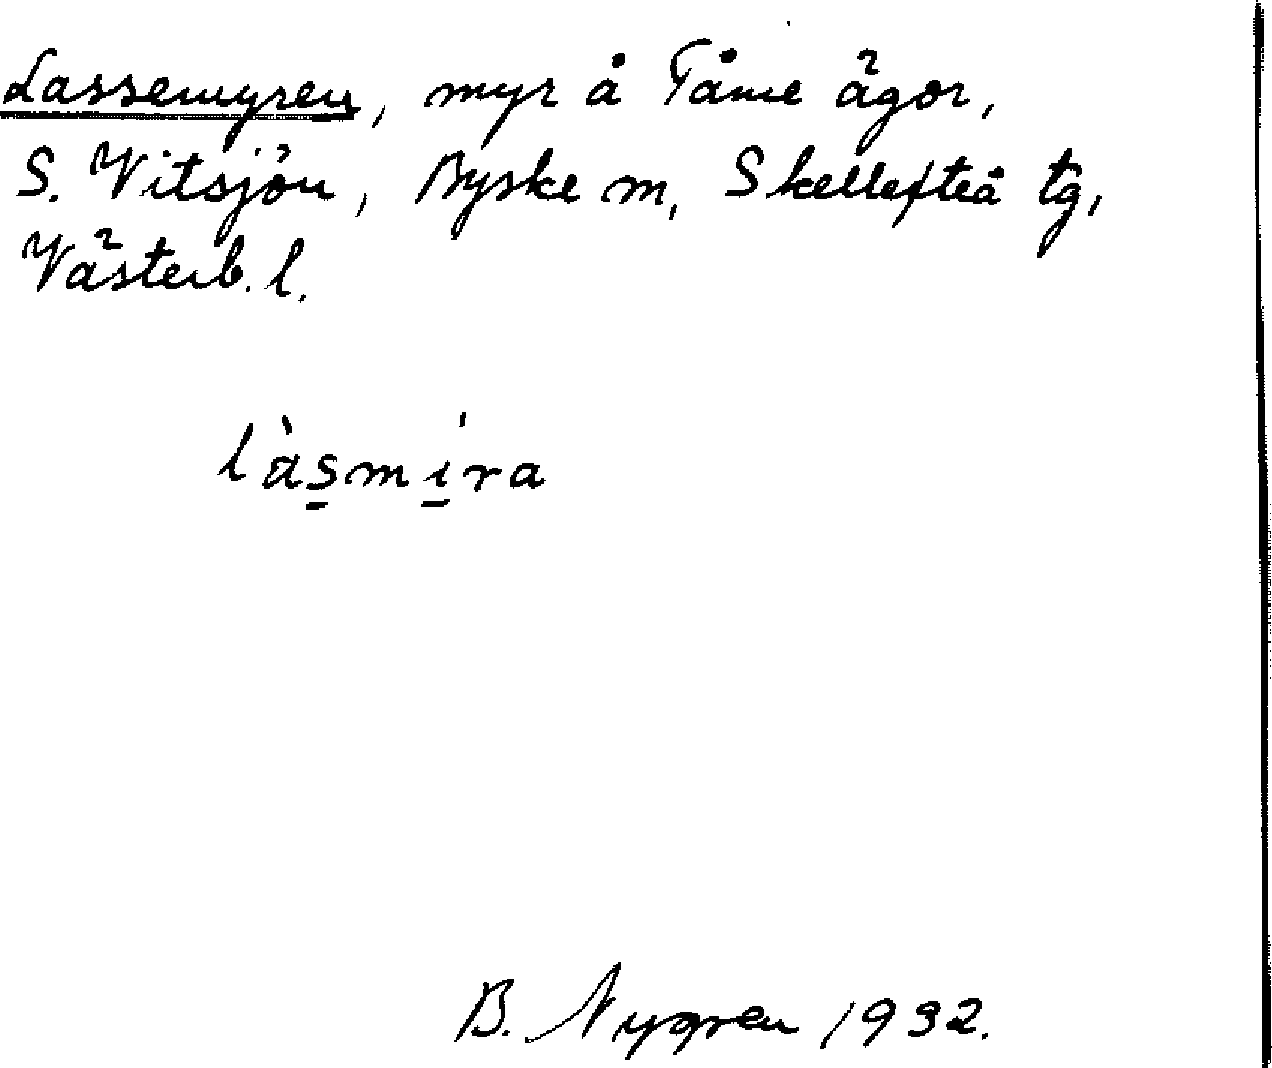 Lassemyren, myr å Tåme ägor,
S. Vitsjön, Byske m, Skellefteå tg,
Västerb. l.
làs̠mí̠ra
B. Nygren 1932.